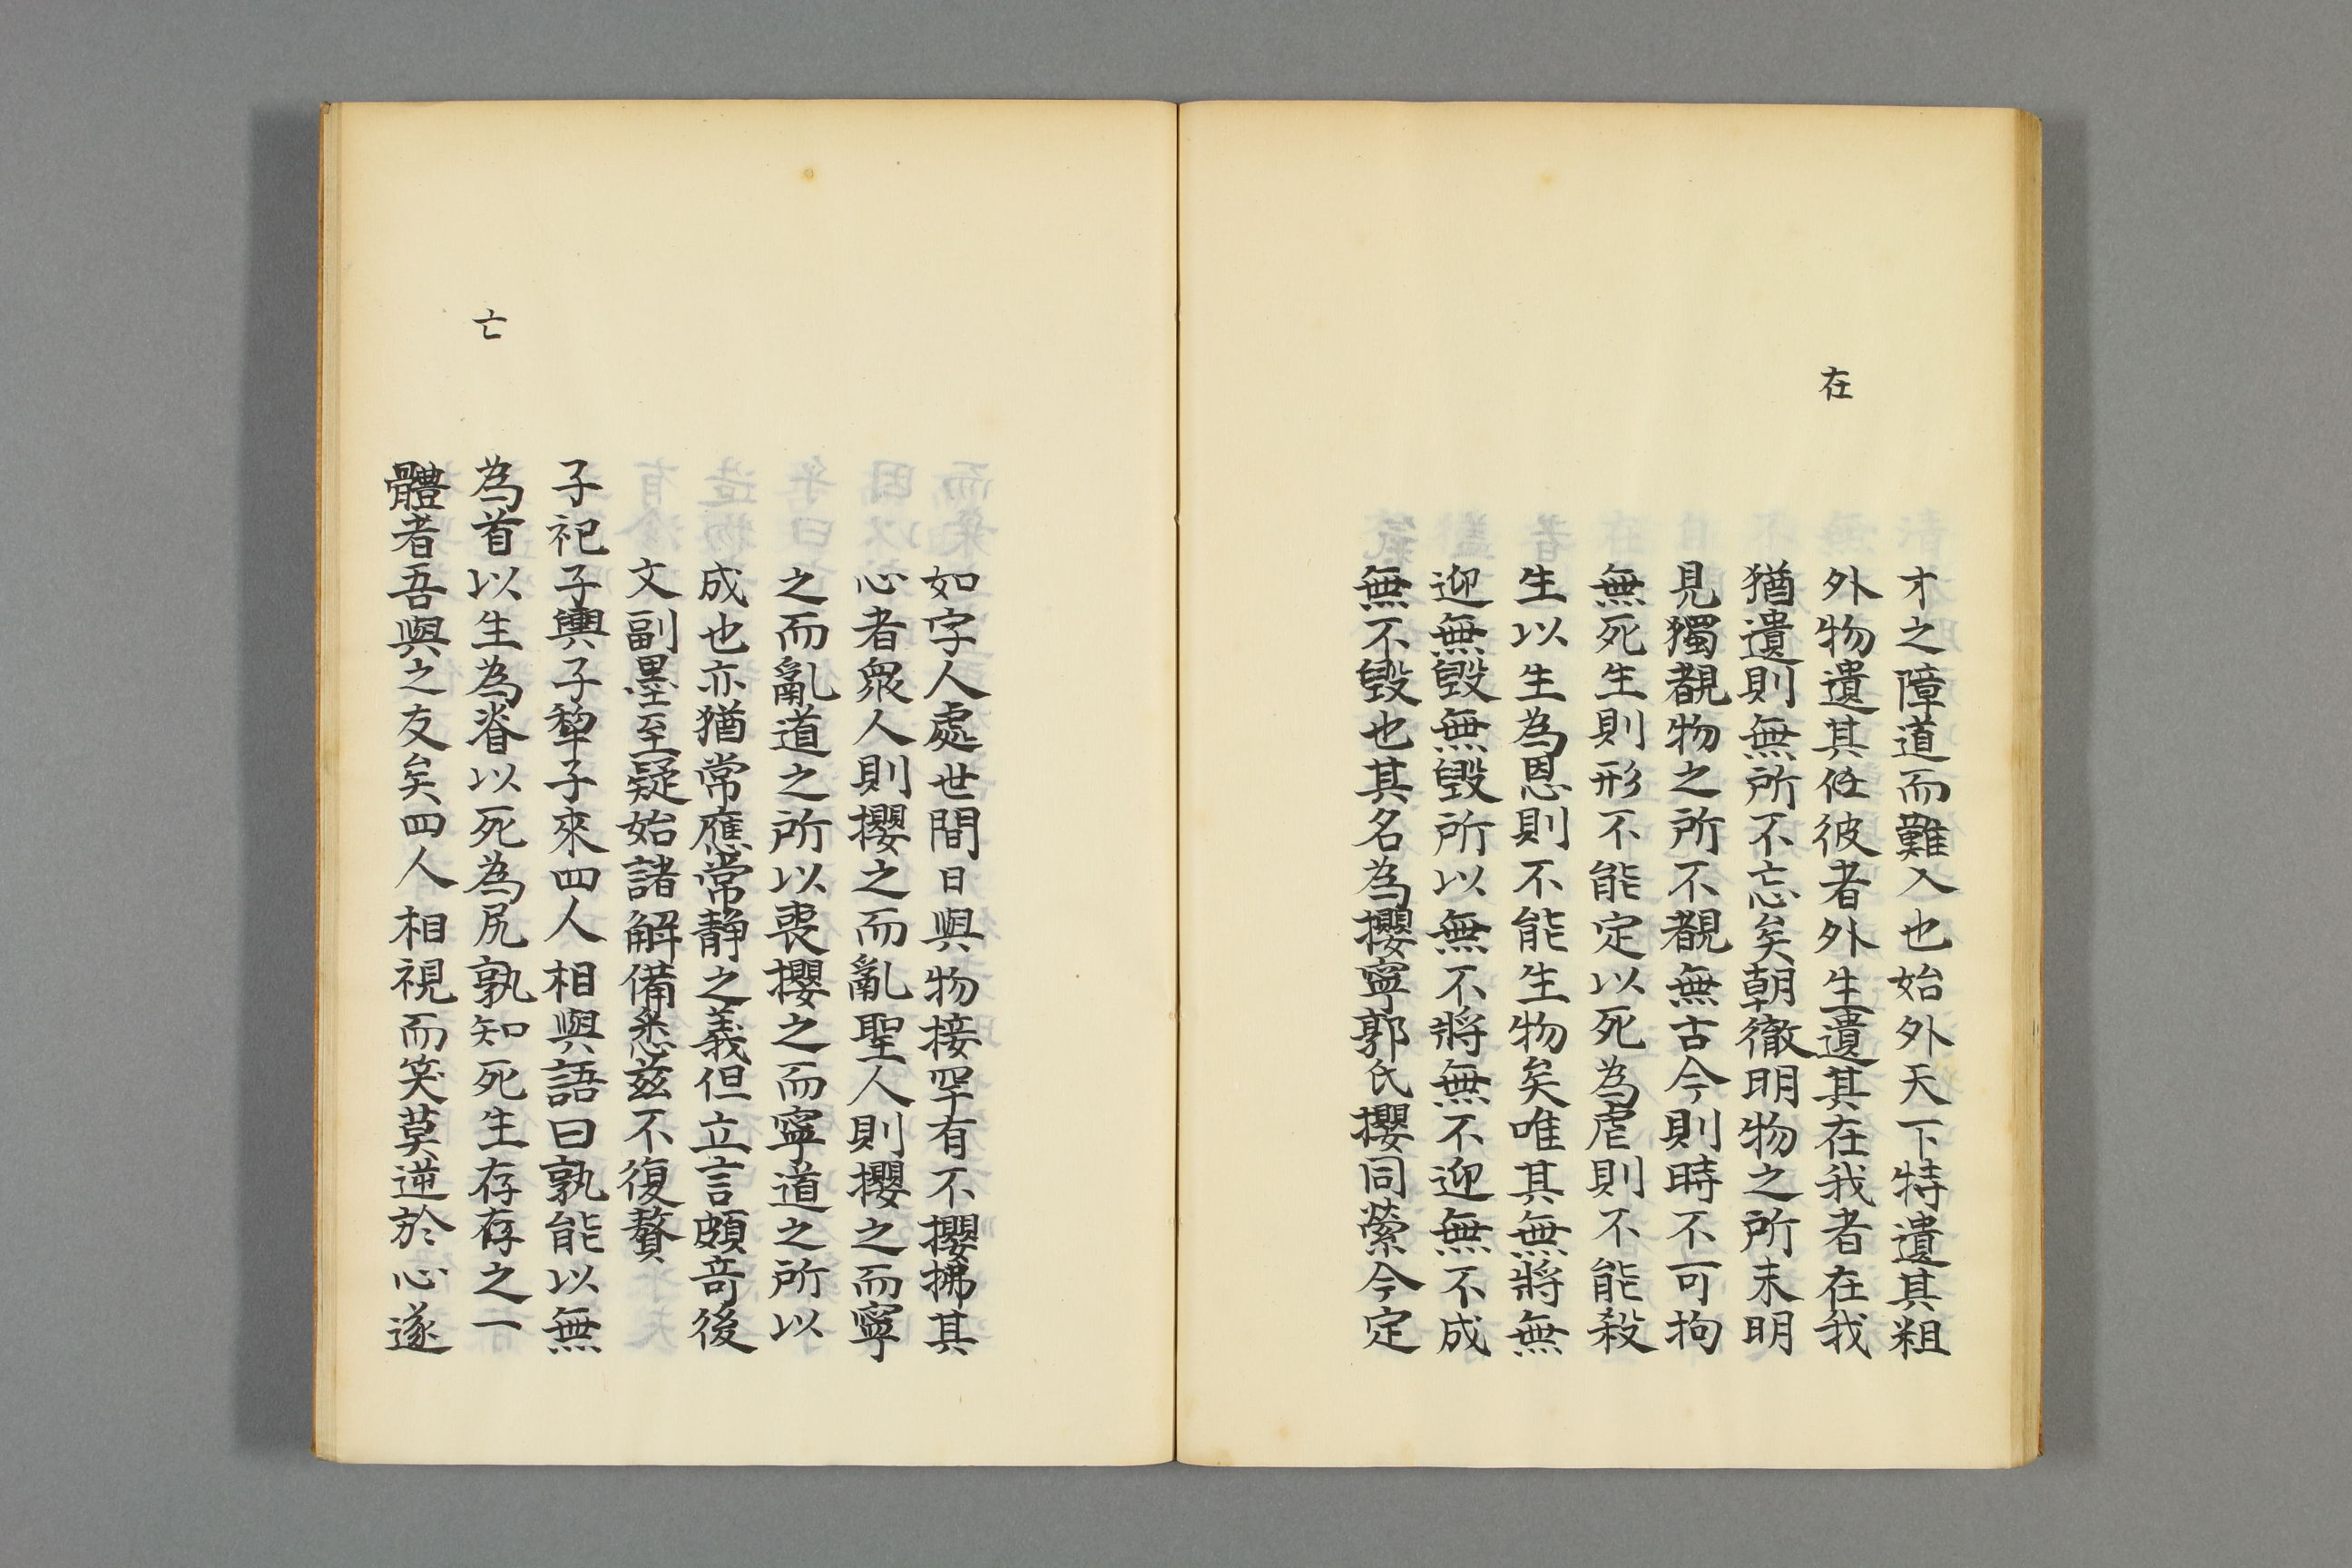 在
才之障道而難入也始外天下特遺其粗
外物遺其任彼者外生遺其在我者在我
猶遺則無所不忘矣朝徹明物之所未明
見獨覩物之所不覩無古今則時不可拘
無死生則形不能定以死為虐則不能殺
生以生為恩則不能生物矣唯其無將無
迎無毀無毀所以無不將無不迎無不成
無不毀也其名為攖寧郭氏攖同縈今定
亡
如字人處世間日與物接罕有不攖拂其
心者衆人則攖之而亂聖人則攖之而寧
之而亂道之所以喪攖之而寧道之所以
成也亦猶常應常静之義但立言頗奇後
文副墨至疑始諸解備悉茲不復贅
子祀子輿子犂子來四人相與語曰孰能以無
為首以生為脊以死為尻孰知死生存存之一
體者吾與之友矣四人相視而笑莫逆於心遂